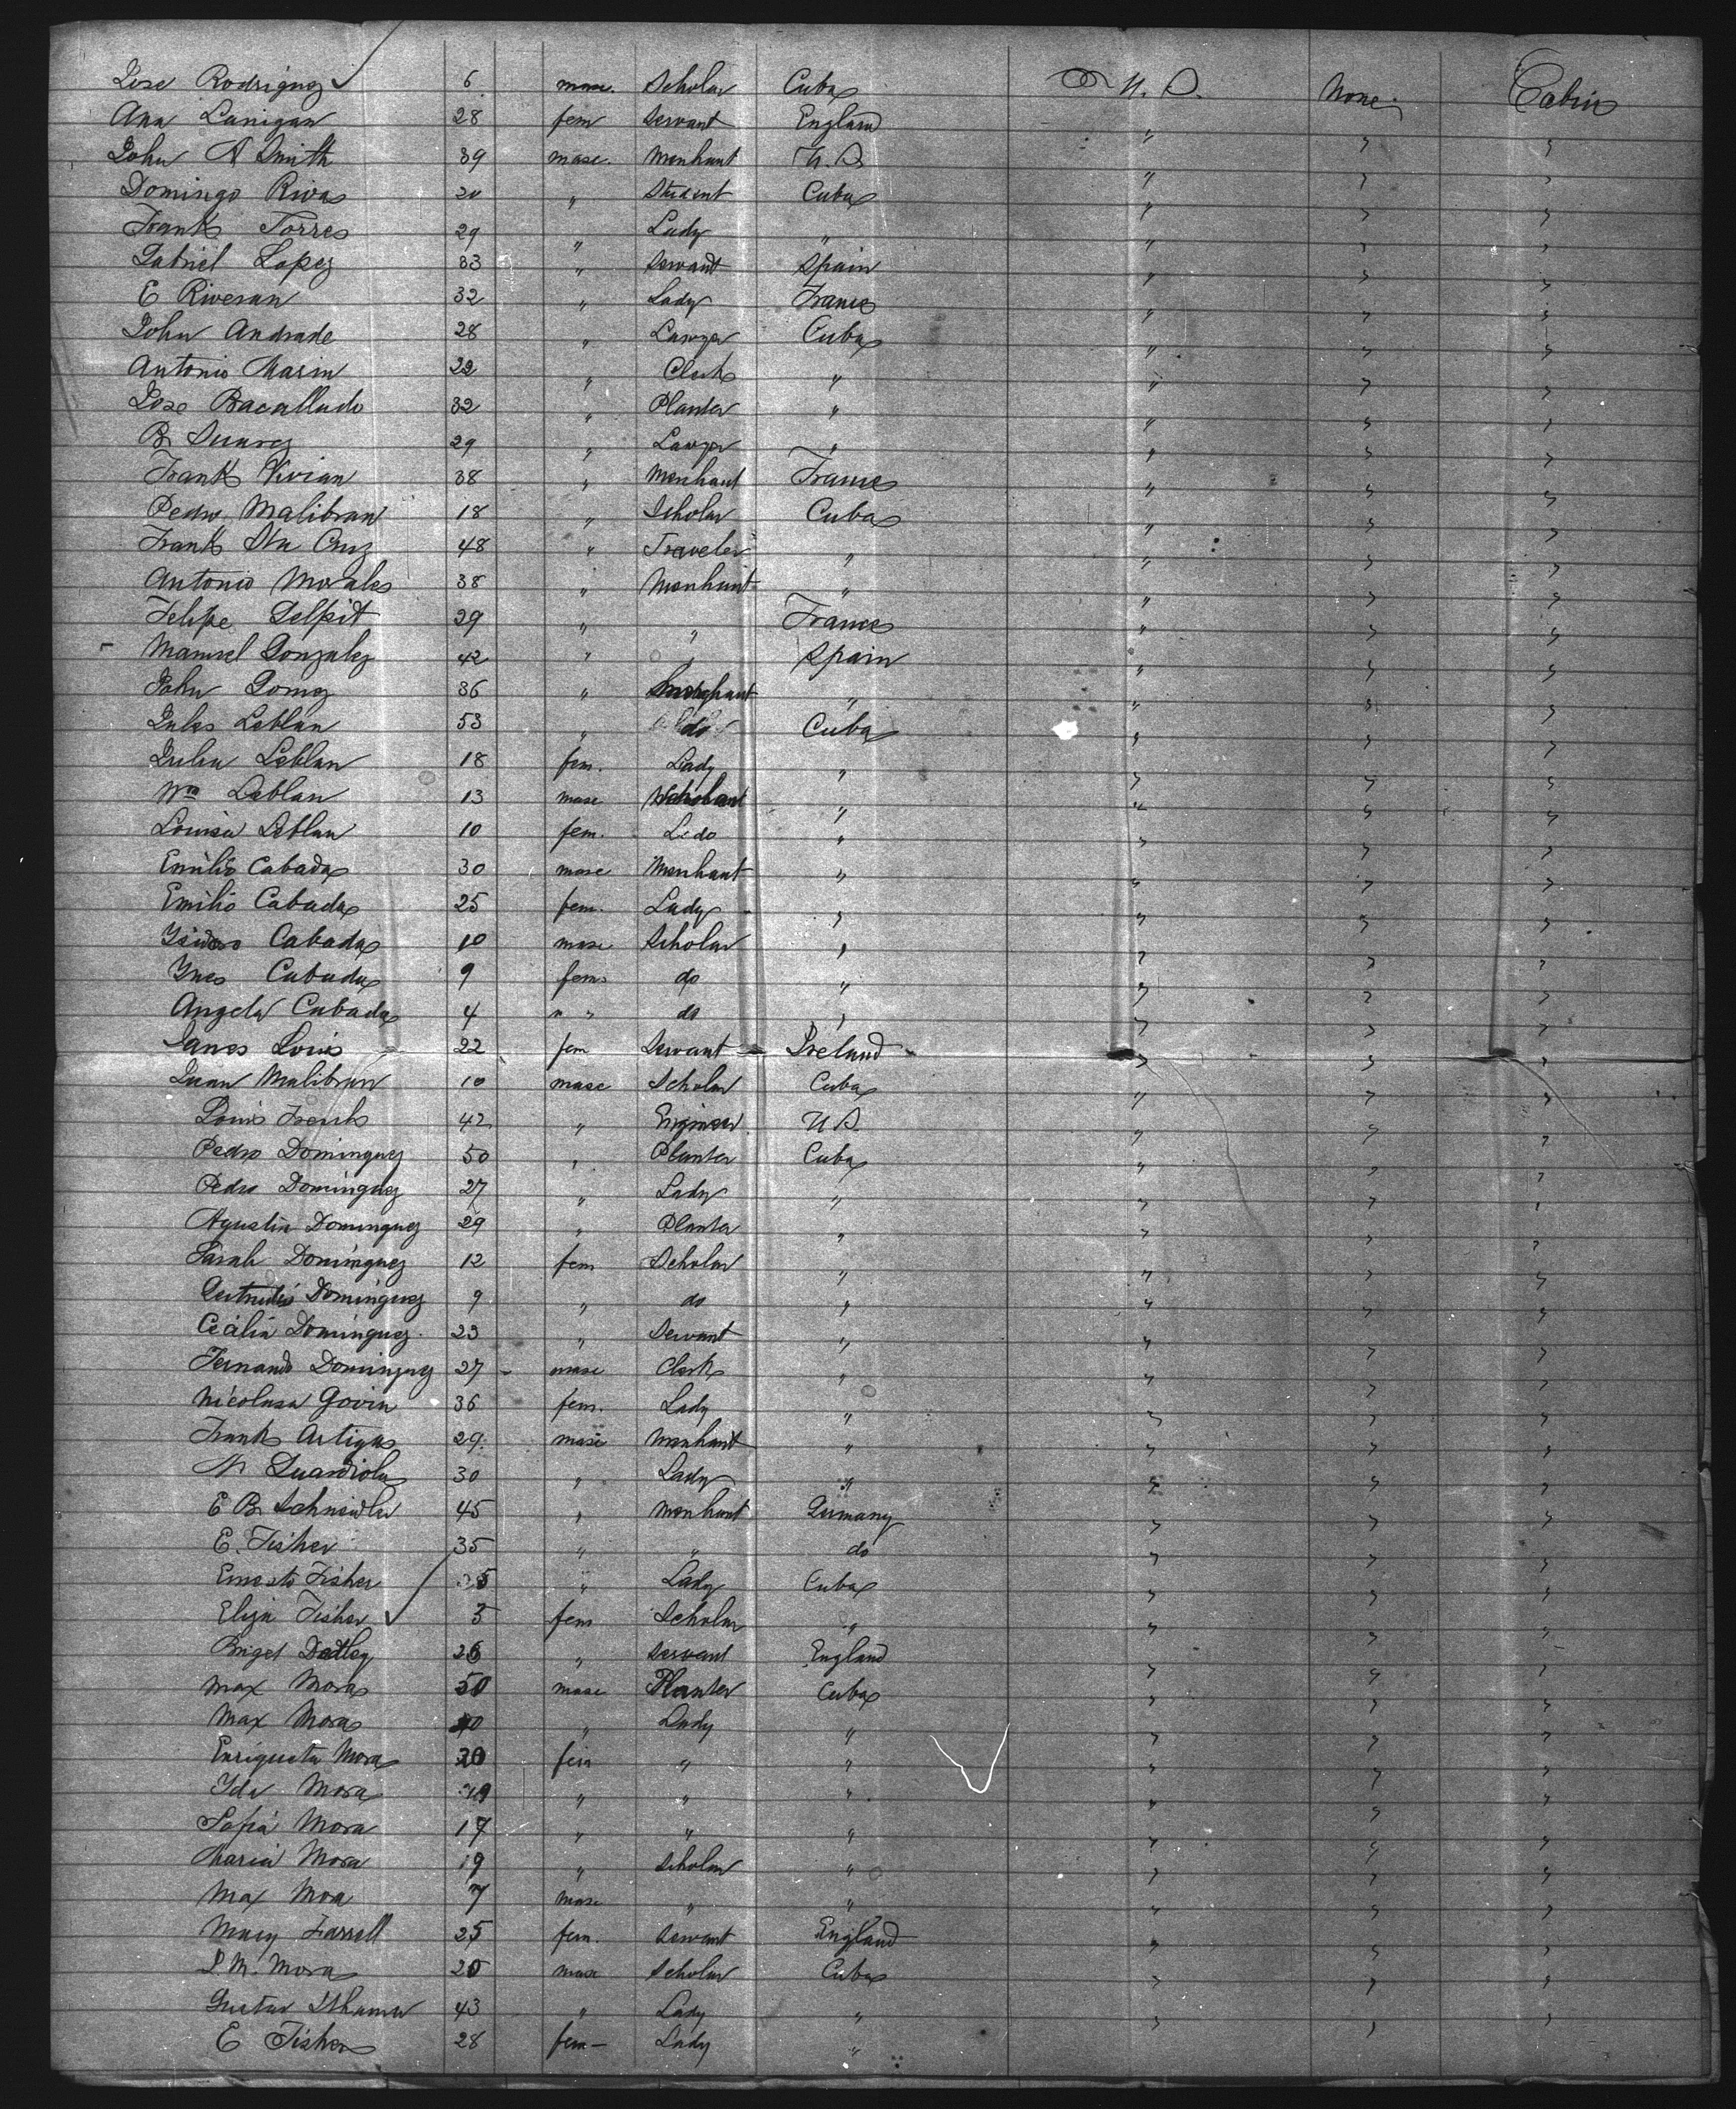 Jose Rodriguez 6 masc. Scholar Cuba U.S. None Cabin
Ann Lanigan 28 fem Servant England " " "
John A Smith 39 masc. Merchant U.S. " " "
Domingo Rivas 20 " Student Cuba " " "
Frank Torres 29 " Lady " " " "
Gabriel Lopez 33 " Servant Spain " " "
E Riveran 32 " Lady France " " "
John Andrade 28 " Lawyer Cuba " " "
Antonio Marin 22 " Clerk " " " "
Jose Bacallado 32 " Planter " " " "
B Suarez 29 " Lawyer " " " "
Frank Vivian 38 " Merchant France " " "
Pedro Malibran 18 " Scholar Cuba " " "
Frank Sta Cruz 48 " Traveler " " " "
Antonio Morales 38 " Merchant " " " "
Felipe Delpit 29 " " France " " "
Manuel Gonzalez 42 " " Spain " " "
John Gomez 36 " Merchant " " " "
Jules Leblan 53 " do Cuba " " "
Julia Leblan 18 fem. Lady " " " "
Wm Leblan 13 masc Scholar " " " "
Louisa Leblan 10 fem. do " " " "
Emilio Cabada 30 masc Merchant " " " "
Emilio Cabada 25 fem. Lady " " " "
Ysidoro Cabada 10 masc Scholar " " " "
Ynes Cabada 9 fem do " " " "
Angela Cabada 4 " " do " " " "
Janes Louis 22 fem Servant Ireland " " "
Juan Malibran 10 masc Scholar Cuba " " "
Louis French 42 " Engineer U.S. " " "
Pedro Dominguez 50 " Planter Cuba " " "
Pedro Dominguez 27 " Lady " " " "
Agustin Dominguez 29 " Planter " " " "
Sarah Dominguez 12 fem Scholar " " " "
Gertrudis Dominguez 9 " do " " " "
Cecilia Dominguez 23 " Servant " " " "
Fernando Dominguez 27 masc Clerk " " " "
Nicolasa Govin 36 fem. Lady " " " "
Frank Artigas 29 masc Merchant " " " "
N Guardiola 30 " Lady " " " "
E B Schneidler 45 " Merchant Germany " " "
E. Fisher 35 " " do " " "
Ernesto Fisher 35 " Lady Cuba " " "
Eliza Fisher 3 fem Scholar " " " "
Briget Dedley 26 " Servant England " " "
Max Mora 50 masc Planter Cuba " " "
Max Mora 40 " Lady " " " "
Enriqueta Mora 20 fem " " " " "
Yda Mora 19 " " " " " "
Sofia Mora 17 " " " " " "
Maria Mora 19 " Scholar " " " "
Max Mora 7 masc " " " " "
Mary Farrell 25 fem. Servant England " " "
J. M. Mora 20 masc Scholar Cuba " " "
Gustav 43 " Lady " " " "
E Fisher 28 fem Lady "